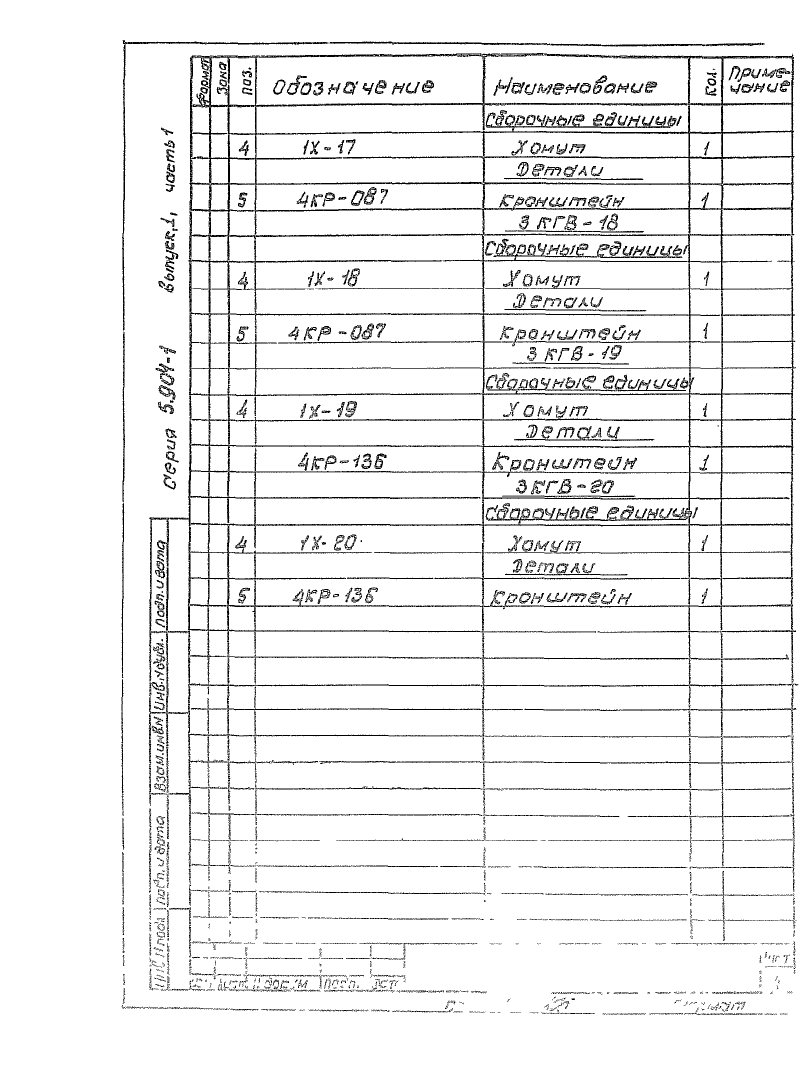 Формат Зона Поз. Обозначение Наименование Кол. Приме-
чание
Сборочные единицы
4 1Х-17 Хомут 1
Детали
5 4КР-087 Кронштейн 1
3 КГВ-18
Сборочные единицы
4 1Х-18 Хомут 1
Детали
5 4КР-087 Кронштейн 1
3 КГВ-19
Сборочные единицы
4 1Х-19 Хомут 1
Детали
4КР-136 Кронштейн 1
3КГВ-20
Сборочные единицы
4 1Х-20 Хомут 1
Детали
5 4КР-136 Кронштейн 1
Серия 5.904-1 Выпуск,1, часть 1
Подп. и дата
Инв.№дубл.
Взам.инв.№
Подп. и дата
Лист
Подп.